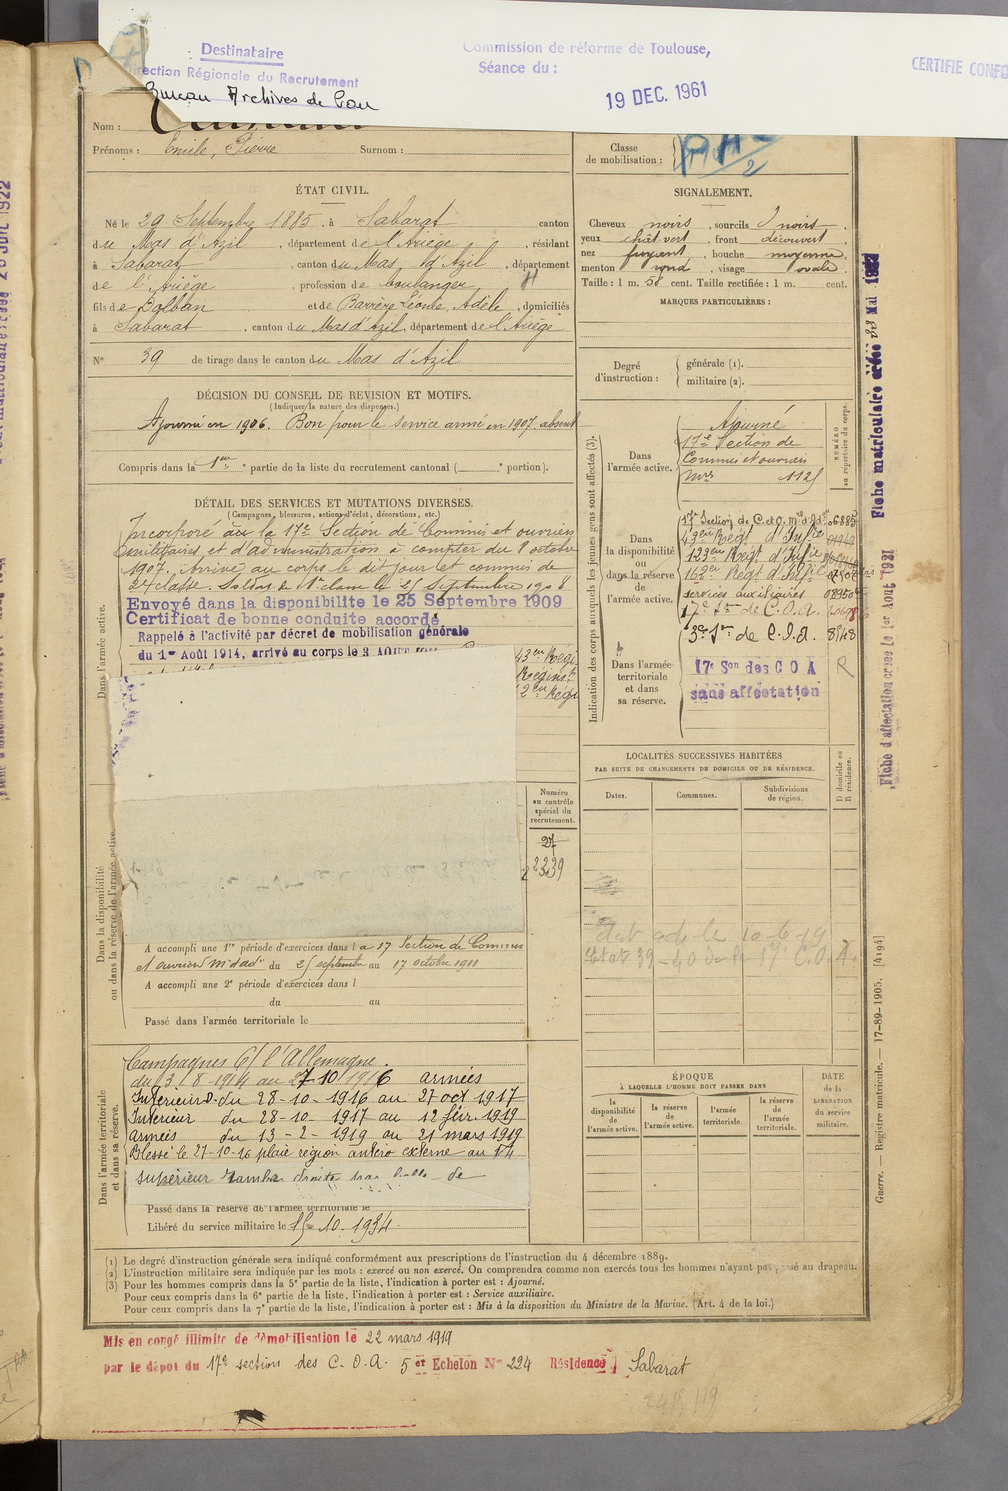 Destinataire
Direction Régionale du Recrutement
Bureau Archives de Pau
Commission de réforme de Toulouse,
Séance du :
19 DEC. 1961
CERTIFIE CONFO
Nom :
Prénoms : Emile, Pierre Surnom :
Classe
de mobilisation :
ÉTAT CIVIL.
Né le 29 Septembre 1885, à Sabarat canton
du Mas d'Azil, département de l'Ariège, résidant
à Sabarat, canton du Mas d'Azil, département
de l'Ariège, profession de boulanger
fils de Balban et de Barrère Léonie, Adèle, domiciliés
à Sabarat, canton du Mas d'Azil, département de l'Ariège
N° 39 de tirage dans le canton du Mas d'Azil
SIGNALEMENT.
Cheveux noirs, sourcils noirs,
yeux chât-vert, front découvert,
nez fuyant, bouche moyenne,
menton rond, visage ovale.
Taille : 1 m. 58 cent. Taille rectifiée : 1 m. cent.
MARQUES PARTICULIÈRES :
Degré
d'instruction :
générale (1).
militaire (2).
DÉCISION DU CONSEIL DE REVISION ET MOTIFS.
(Indiquer la nature des dispenses.)
Ajourné en 1906. Bon pour le service armé en 1907. absent
Compris dans la 1re partie de la liste du recrutement cantonal ( e portion).
DÉTAIL DES SERVICES ET MUTATIONS DIVERSES.
(Campagnes, blessures, actions d'éclat, décorations, etc.)
Incorporé à la 17e Section de Commis et ouvriers
militaires et d'administration à compter du 8 octobre
1907. Arrivé au corps le dit jour et commis de
2e classe. Soldat de 1re classe le 25 Septembre 1908
Envoyé dans la disponibilite le 25 Septembre 1909
Certificat de bonne conduite accordé
Rappelé à l'activité par décret de mobilisation générale
du 1er Août 1914, arrivé au corps le 3 AOUT
43e Régi
2e Régi
Dans l'armée active.
Indication des corps auxquels les jeunes gens sont affectés (3).
NUMÉRO
au répertoire du corps.
Dans
l'armée active.
Ajourné
17e Section de
Commis et ouvriers
1125
Dans
la disponibilité
ou
dans la réserve
de
l'armée active.
17e Section de C. et O. m. d'Ad.
43e Régt d'Inf.ie
123e Régt d'Inf.ie
162e Régt d'Inf.ie
services auxiliaires
17e Son de C.O.A.
3e Son de C.O.A. 8848
Dans l'armée
territoriale
et dans
sa réserve.
17e Son des C O A
sans affectation
R
Numéro
au contrôle
spécial du
recrutement.
27
2239
Dans la disponibilité
ou dans la réserve de l'armée active.
A accompli une 1re période d'exercices dans la 17 Section de Commis
et ouvriers m. d'ad. du 25 septembre au 17 octobre 1911
A accompli une 2e période d'exercices dans l
du au
Passé dans l'armée territoriale le
LOCALITÉS SUCCESSIVES HABITÉES
PAR SUITE DE CHANGEMENTS DE DOMICILE OU DE RÉSIDENCE.
Dates. Communes. Subdivisions
de région.
D domicile ou
R résidence.
Dans l'armée territoriale
et dans sa réserve.
Campagnes C/ l'Allemagne
du 3-8-1914 au 27-10-1916 armées
Intérieur du 28-10-1916 au 27 oct 1917
Intérieur du 28-10-1917 au 12 fév. 1919
armées du 13-2-1919 au 21 mars 1919
Blessé le 27-10-16 plaie région antéro externe au 1/4
supérieur jambe droite par balle de
Passé dans la réserve de l'armée territoriale le
Libéré du service militaire le 15-10-1934.
ÉPOQUE
À LAQUELLE L'HOMME DOIT PASSER DANS
la
disponibilité
de
l'armée active.
la
réserve de
l'armée active.
l'armée
territoriale.
la réserve
de
l'armée
territoriale.
DATE
de la
LIBÉRATION
du service
militaire.
(1) Le degré d'instruction générale sera indiqué conformément aux prescriptions de l'instruction du 4 décembre 1889.
(2) L'instruction militaire sera indiquée par les mots : exercé ou non exercé. On comprendra comme non exercés tous les hommes n'ayant pas passé au drapeau.
(3) Pour les hommes compris dans la 5e partie de la liste, l'indication à porter est : Ajourné.
Pour ceux compris dans la 6e partie de la liste, l'indication à porter est : Service auxiliaire.
Pour ceux compris dans la 7e partie de la liste, l'indication à porter est : Mis à la disposition du Ministre de la Marine. (Art. 4 de la loi.)
Mis en congé illimité de démobilisation le 22 mars 1919
par le dépôt du 17e section des C.O.A. 5e Echelon N° 224 Résidence Sabarat
Guerre. — Registre matricule. — 17-89-1905. [4194]
Fiche matriculaire créée Mai
Fiche d'affectation créée le 1er Août 1921